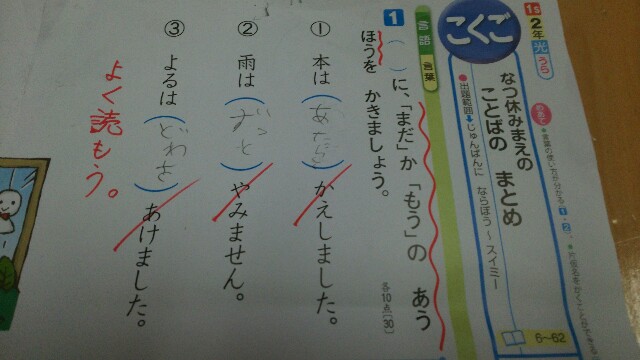 1s 2年 光 うら
こくご
なつ休みまえの
ことばの まとめ
●出題範囲→じゅんばんに ならぼう～スイミー
6～62
言語 言葉
1 ( )に、「まだ」か「もう」の あう
ほうを かきましょう。
各10点[30]
① 本は( )かえしました。
② 雨は(ずっと)やみません。
③ よるは(どわを)あけました。
よく読もう。